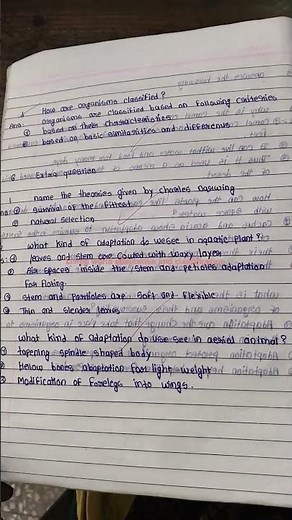 How are organisms classified?
Ans: organisms are classified based on following catiseries
① based on their characteristics
② based on basic similarities and differences
Extra question
1 name the theories given by charles naswing
① survival of the fittest
② natural selection
what kind of adaptation do wesee in aquatic plant?
① leaves and stem are couted with waxy layer
② Air spaces inside the stem and petioles adaptation
for floting.
③ stem and partioles are soft and flexible
④ Thin and slender leaves
what kind of adaptation do use see in aerial animal?
① tapering spindle shaped body
② Helow bones abaptation for light weight
③ Modification of forelegs into wings.